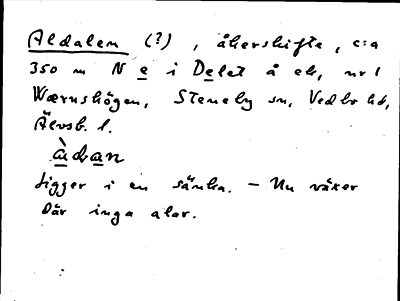 Aldalen (?), åkerskifte, c:a
350 m N e i Delet å ek, nr 1
Wærnshögen, Steneby sn, Vedbo hd,
Älvsb. l.
àdan
Ligger i en sänka. – Nu växer
där inga alar.